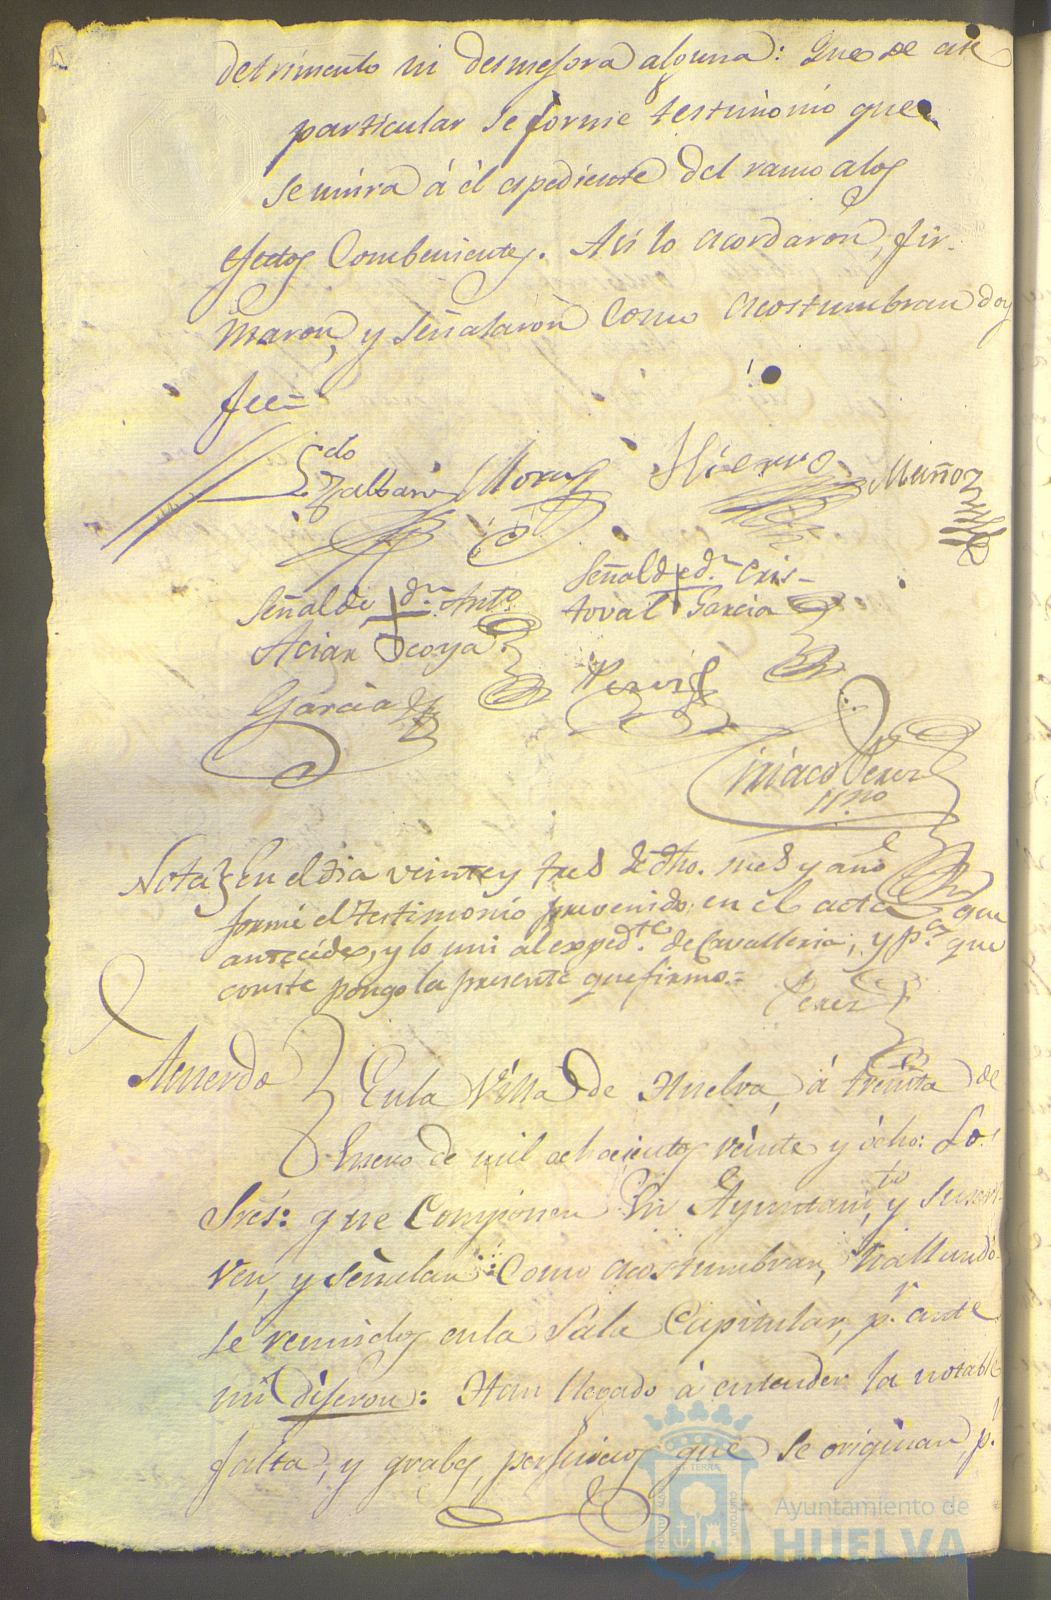 detrimento ni desmejora alguna: Que de este
particular se forme testimonio que
se unira á él espediente del ramo alos
efectos Combenientes. Asi lo acordaron, fir-
maron, y señalaron Como Acostumbran doy
fee=
Hierro Muñoz
Señal de dn. Anto.
Señal de dn. Cris-
toval Garcia
Acian Ocoya
Garcia Perez
Ciriaco Perez
Nota En el dia veinte y tres de dho. mes y año
formé el testimonio prevenido en el acta que
antecede, y lo uni al expedte. de Cavalleria; y pa. que
conste pongo la presente que firmo.=
Perez
Acuerdo En la Villa de Huelva, á treinta de
Enero de mil ochocientos veinte y ócho: Los
Sres: que Componen Su Ayuntamto. y suscri
ven, y señalan Como acostumbran, hallando
se reunidos en la Sala Capitular, pr. ante
mi dijeron: Han llegado á entender la notable
falta, y grabes perjuicios que se originan pr.
Ayuntamiento de
HUELVA